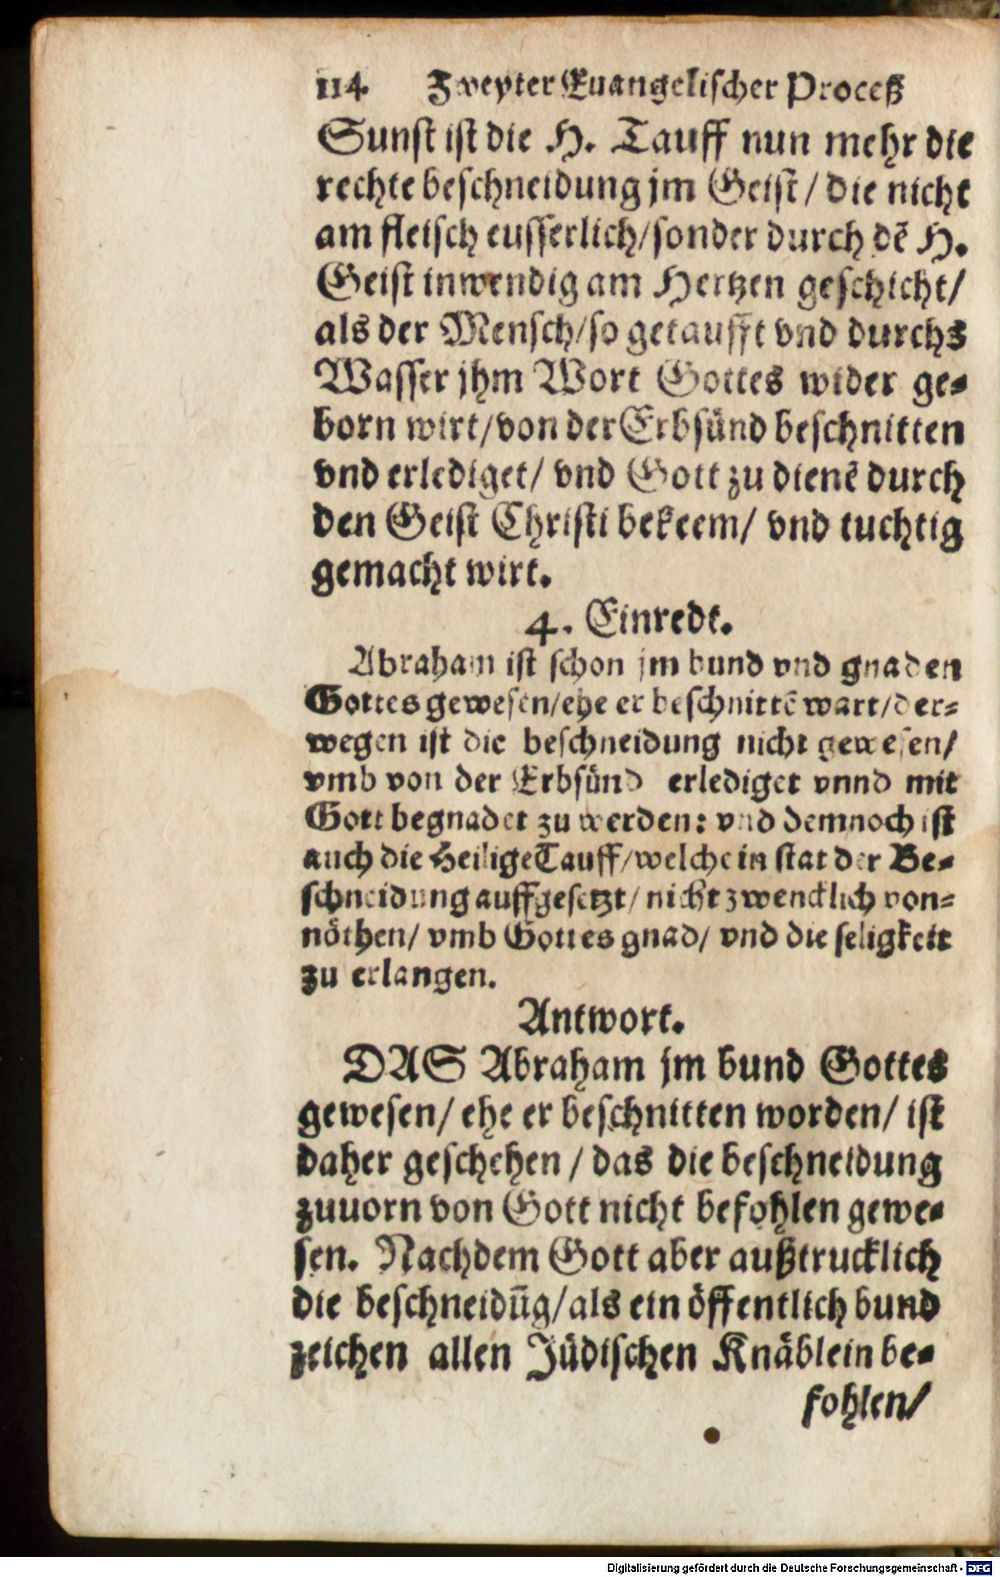 114 Zweyter Euangelischer Proceß
Sunst ist die H. Tauff nun mehr die
rechte beschneidung jm Geist / die nicht
am fleisch eusserlich / sonder durch dẽ H.
Geist inwendig am Hertzen geschicht /
als der Mensch / so getaufft vnd durchs
Wasser jhm Wort Gottes wider ge-
born wirt / von der Erbsünd beschnitten
vnd erlediget / vnd Gott zu dienẽ durch
den Geist Christi bekeem / vnd tuchtig
gemacht wirt.
4. Einredt.
Abraham ist schon jm bund vnd gnaden
Gottes gewesen / ehe er beschnittẽ wart / der-
wegen ist die beschneidung nicht gewesen /
vmb von der Erbsünd erlediget vnnd mit
Gott begnadet zu werden: vnd demnoch ist
auch die Heilige Tauff / welche in stat der Be-
schneidung auffgesetzt / nicht zwencklich von-
nöthen / vmb Gottes gnad / vnd die seligkeit
zu erlangen.
Antwort.
DAS Abraham jm bund Gottes
gewesen / ehe er beschnitten worden / ist
daher geschehen / das die beschneidung
zuuorn von Gott nicht befohlen gewe-
sen. Nachdem Gott aber außtrucklich
die beschneidũg / als ein öffentlich bund
zeichen allen Jüdischen Knäblein be-
fohlen /
Digitalisierung gefördert durch die Deutsche Forschungsgemeinschaft - DFG